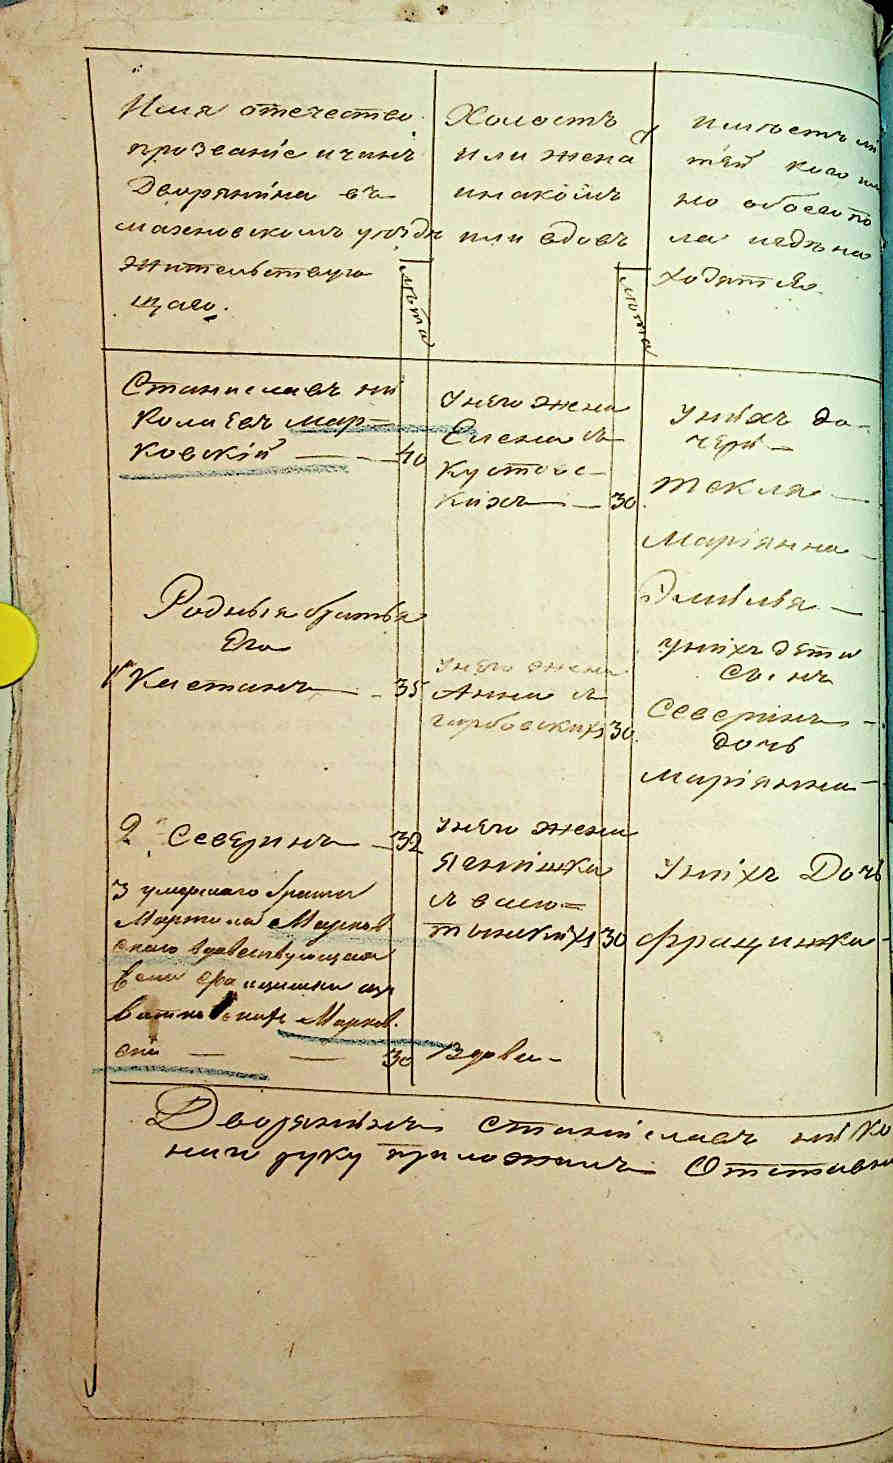 Имя отечество
прозваніе и чинъ
Дворянина въ
махновскомъ уездѣ
жительствую
щаго.
лѣта
Холостъ
или жена
инакомъ
или вдовъ
лѣта
имѣетъ ли
тей кого
но обоего по
ла и где на
ходятся.
Станиславъ ни
колаевъ мар-
ковскій — 40
У него жена
Елена съ
кустов-
кихъ — 30
У нихъ до-
чери —
текля —
Маріянна —
Эмилія —
Родныя братья
Его
1й Каетанъ — 35
У него жена
Анна съ
гарбовскихъ 30
У нихъ дети
сынъ
Северинъ —
дочь
маріянна —
2 Северинъ — 32
У него жена
Ягнішка
съ васю=
тынскихъ 30
У нихъ Дочь
францишка —
3 умершаго брата
Мартина Марков
скаго вдовствующая
жена францишка
Марков.
ска — — 30
Вдова —
Дворянинъ станіславъ нико
руку приложилъ Отставно